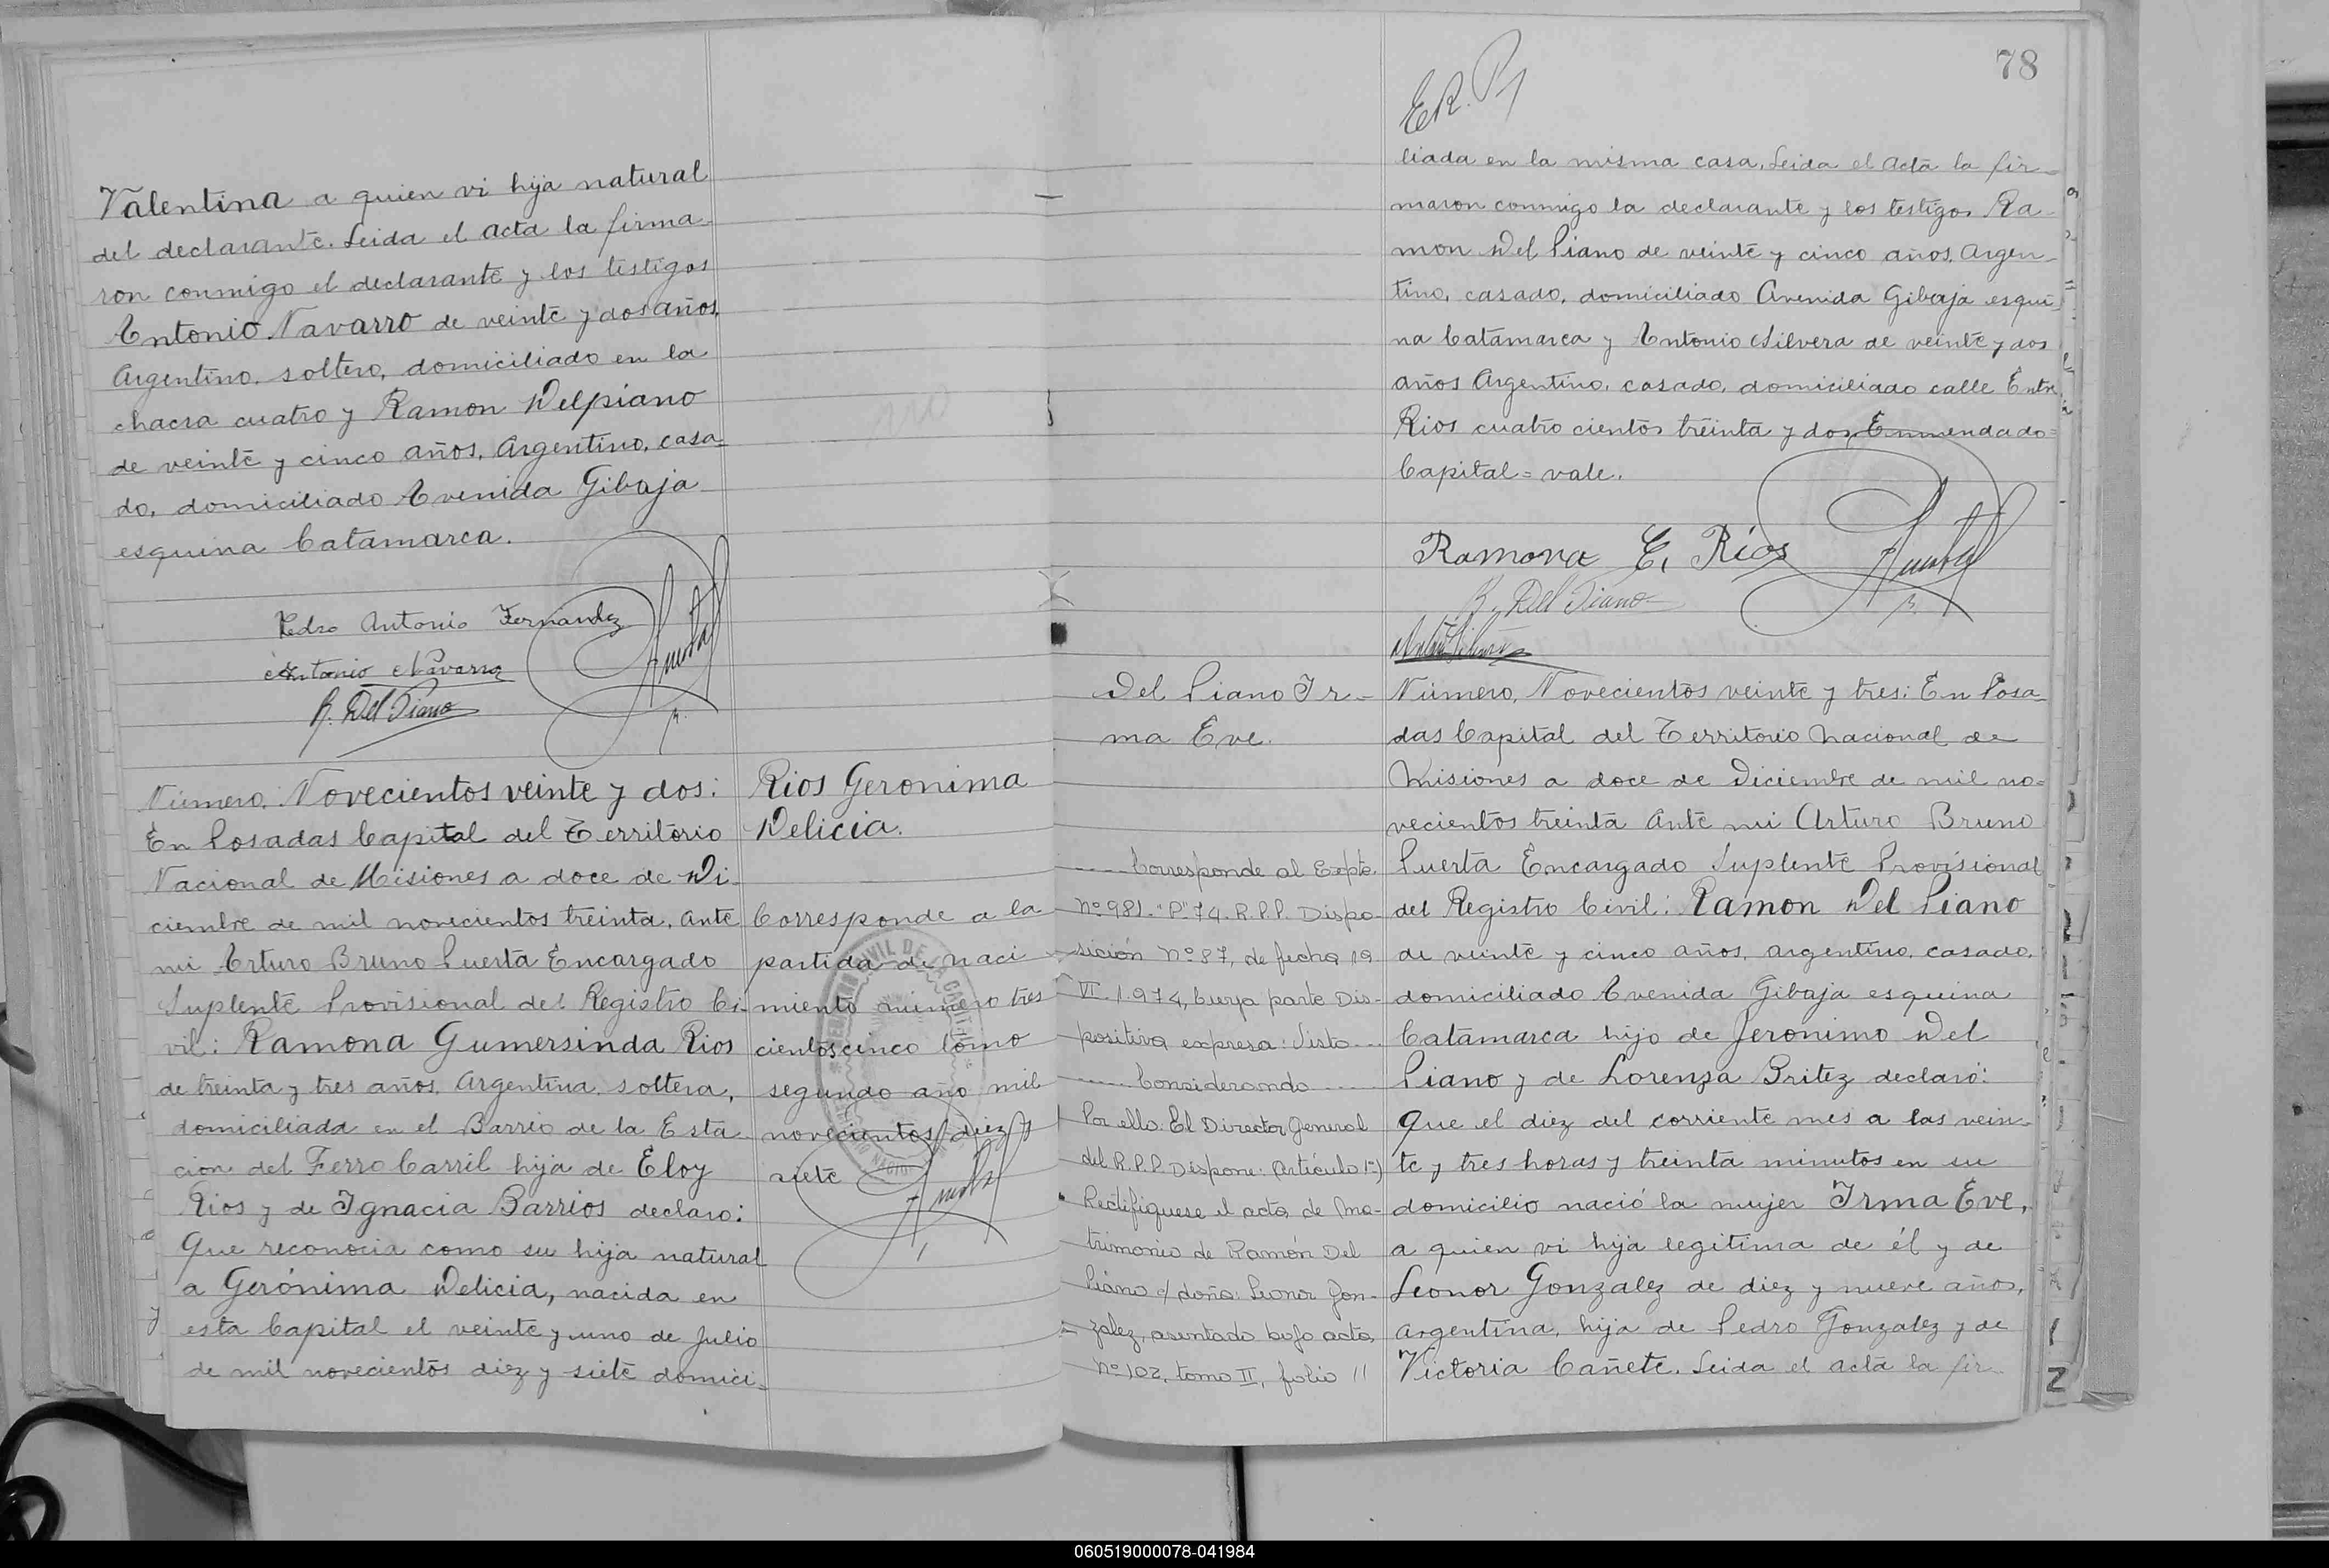 Valentina a quien vi hija natural
del declarante. Leida el acta la firma-
ron conmigo el declarante y los testigos
Antonio Navarro de veinte y dos años,
Argentino, soltero, domiciliado en la
chacra cuatro y Ramon Delpiano
de veinte y cinco años, Argentino, casa-
do, domiciliado Avenida Gibaja
esquina Catamarca.
Pedro Antonio Fernández
Antonio Navarro
R. Del Piano
Número, Novecientos veinte y dos:
En Posadas Capital del Territorio
Nacional de Misiones a doce de Di-
ciembre de mil novecientos treinta, ante
mi Arturo Bruno Puerta Encargado
Suplente Provisional del Registro Ci-
vil: Ramona Gumersinda Rios
de treinta y tres años, Argentina, soltera,
domiciliada en el Barrio de la Esta
cion del Ferro Carril hija de Eloy
Rios y de Ignacia Barrios declaro:
Que reconocia como su hija natural
a Gerónima Delicia, nacida en
esta Capital el veinte y uno de Julio
de mil novecientos diez y siete domici-
Rios Geronima
Delicia.
Corresponde a la
partida de naci
miento número tres
cientos cinco tomo
segundo año mil
novecientos diez y
siete
78
E.R.
liada en la misma casa. Leida el acta la fir-
maron conmigo la declarante y los testigos Ra-
mon Del Piano de veinte y cinco años, Argen-
tino, casado, domiciliado Avenida Gibaja esqui-
na Catamarca y Antonio Silvera de veinte y dos
años Argentino, casado, domiciliado calle Entre
Rios cuatro cientos treinta y dos. Enmendado=
Capital=vale.
Ramona G. Ríos
R. Del Piano
Del Piano Ir-
ma Eve.
Corresponde al Expte.
Nº 981-"P"74. R.P.P. Dispo-
sición Nº 87, de fecha 19
VI. 1.974, cuya parte Dis-
positiva expresa: Visto...
Considerando
Por ello: El Director General
del R.P.P. Dispone: (Artículo 1º)
Rectifiquese el acta de Ma-
trimonio de Ramón Del
Piano c/ doña: Leonor Gon-
zalez, asentado bajo acta,
Nº 102, tomo II, folio 11
Número, Novecientos veinte y tres: En Posa-
das Capital del Territorio Nacional de
Misiones a doce de Diciembre de mil no-
vecientos treinta ante mi Arturo Bruno
Puerta Encargado Suplente Provisional
del Registro Civil: Ramon Del Piano
de veinte y cinco años, argentino, casado,
domiciliado Avenida Gibaja esquina
Catamarca hijo de Jeronimo Del
Piano y de Lorenza Britez declaró:
Que el diez del corriente mes a las vein-
te y tres horas y treinta minutos en su
domicilio nació la mujer Irma Eve,
a quien vi hija legitima de él y de
Leonor Gonzalez de diez y nueve años,
argentina, hija de Pedro Gonzalez y de
Victoria Cañete. Leida el acta la fir-
060519000078-041984